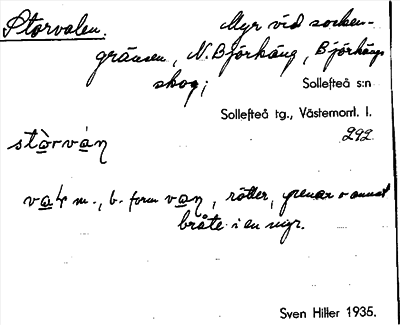 Storvalen. Myr vid socken-
gränsen, N. Björkäng, Björkängs
skog; Sollefteå s:n
Sollefteå tg., Västernorrl. l.
292.
stòrván
m., b. form van, rötter, grenar o annat
bråte i en myr.
Sven Hitter 1935.